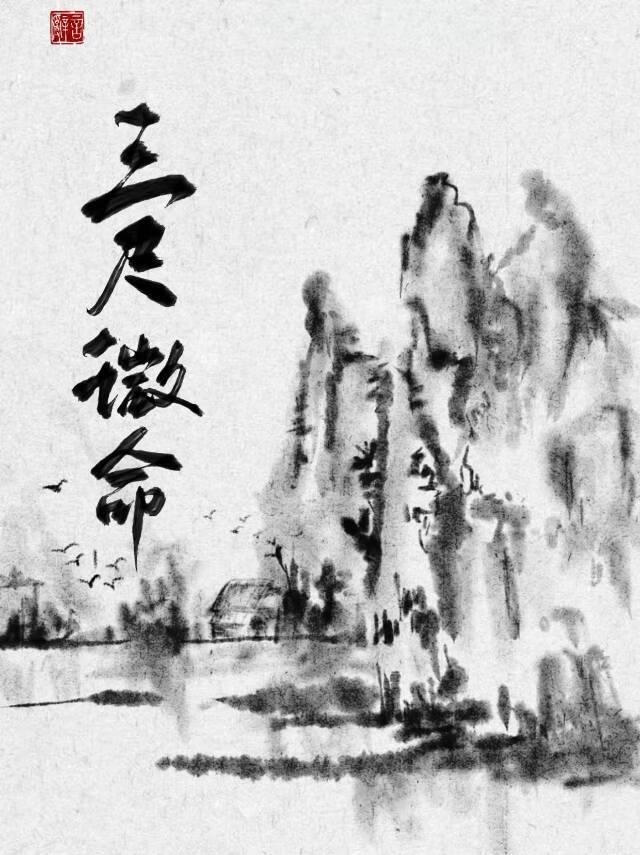 三尺微命